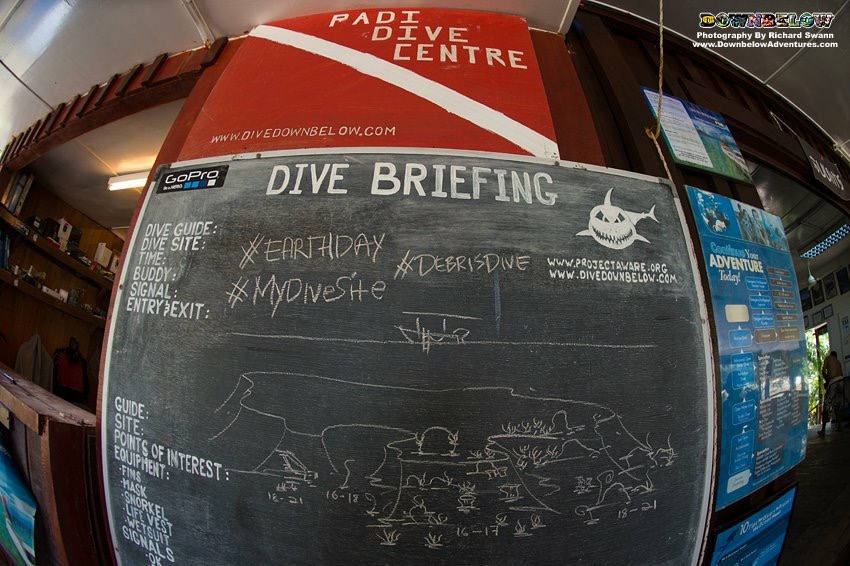 DOWNBELOW
Photography By Richard Swann
www.DownbelowAdventures.com
PADI
DIVE
CENTRE
WWW.DIVEDOWNBELOW.COM
GoPro
Be a HERO.
DIVE BRIEFING
DIVE GUIDE:
DIVE SITE:
TIME:
BUDDY:
SIGNAL:
ENTRY & EXIT:
#EARTHDAY
#DEBRISDIVE
#MYDIVESITE
WWW.PROJECTAWARE.ORG
WWW.DIVEDOWNBELOW.COM
GUIDE:
SITE:
POINTS OF INTEREST:
EQUIPMENT:
-FINS
-MASK
-SNORKEL
-LIFE VEST
-WETSUIT
SIGNALS
OK
18-21
16-18
16-17
18-21
Continue Your
ADVENTURE
Today!